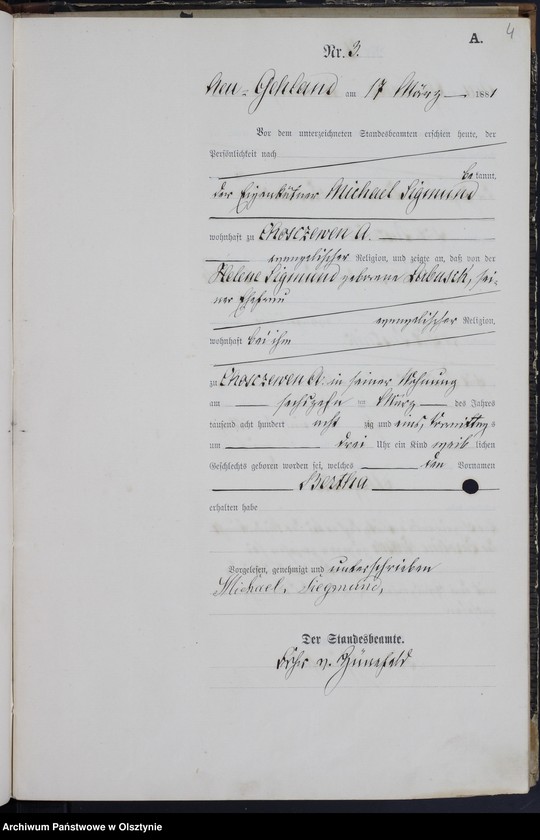 4
A.
Nr. 3.
Neu-Gehland am 17 März 1881
Vor dem unterzeichneten Standesbeamten erschien heute, der
Persönlichkeit nach
bekannt,
der Eigenkätner Michael Sigmund
wohnhaft zu Choszczewen A.
evangelischer Religion, und zeigte an, daß von der
Helene Sigmund geborene Labusch, sei-
ner Ehefrau
evangelischer Religion,
wohnhaft bei ihm
zu Choszczewen A: in seiner Wohnung
am sechszehn ten März des Jahres
tausend acht hundert acht zig und eins, Vormittags
um drei Uhr ein Kind weib lichen
Geschlechts geboren worden sei, welches den Vornamen
Bertha
erhalten habe
Vorgelesen, genehmigt und unterschrieben
Michael, Siegmund,
Der Standesbeamte.
v. Hünefeld
Archiwum Państwowe w Olsztynie